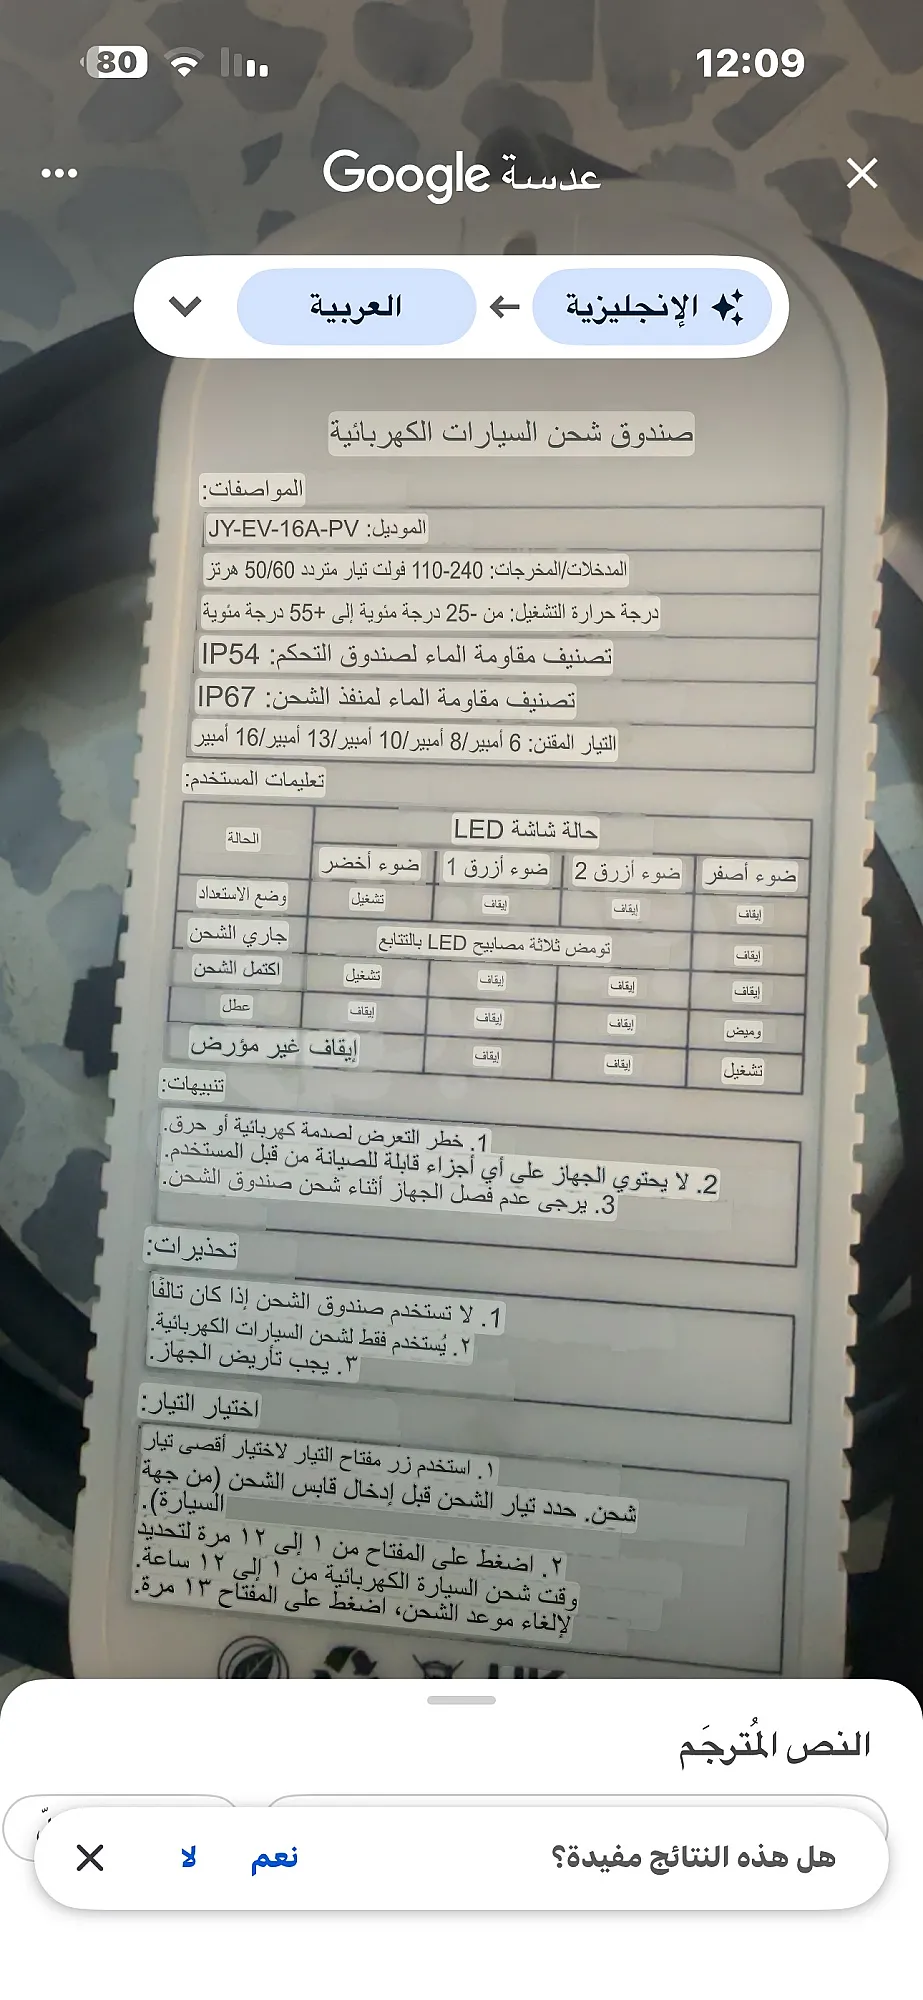 80
12:09
عدسة Google
الإنجليزية
العربية
صندوق شحن السيارات الكهربائية
المواصفات:
الموديل: JY-EV-16A-PV
المدخلات/المخرجات: 240-110 فولت تيار متردد 50/60 هرتز
درجة حرارة التشغيل: من -25 درجة مئوية إلى +55 درجة مئوية
تصنيف مقاومة الماء لصندوق التحكم: IP54
تصنيف مقاومة الماء لمنفذ الشحن: IP67
التيار المقنن: 6 أمبير/8 أمبير/10 أمبير/13 أمبير/16 أمبير
تعليمات المستخدم:
الحالة
حالة شاشة LED
ضوء أخضر ضوء أزرق 1 ضوء أزرق 2 ضوء أصفر
وضع الاستعداد تشغيل إيقاف إيقاف إيقاف
جاري الشحن تومض ثلاثة مصابيح LED بالتتابع إيقاف
اكتمل الشحن تشغيل إيقاف إيقاف إيقاف
عطل إيقاف إيقاف إيقاف وميض
إيقاف غير مؤرض إيقاف إيقاف تشغيل
تنبيهات:
1. خطر التعرض لصدمة كهربائية أو حرق.
2. لا يحتوي الجهاز على أي أجزاء قابلة للصيانة من قبل المستخدم.
3. يرجى عدم فصل الجهاز أثناء شحن صندوق الشحن.
تحذيرات:
1. لا تستخدم صندوق الشحن إذا كان تالفًا
٢. يُستخدم فقط لشحن السيارات الكهربائية.
٣. يجب تأريض الجهاز.
اختيار التيار:
١. استخدم زر مفتاح التيار لاختيار أقصى تيار
شحن. حدد تيار الشحن قبل إدخال قابس الشحن (من جهة
السيارة).
٢. اضغط على المفتاح من ١ إلى ١٢ مرة لتحديد
وقت شحن السيارة الكهربائية من ١ إلى ١٢ ساعة.
لإلغاء موعد الشحن، اضغط على المفتاح ١٣ مرة.
النص المُترجَم
هل هذه النتائج مفيدة؟
نعم
لا